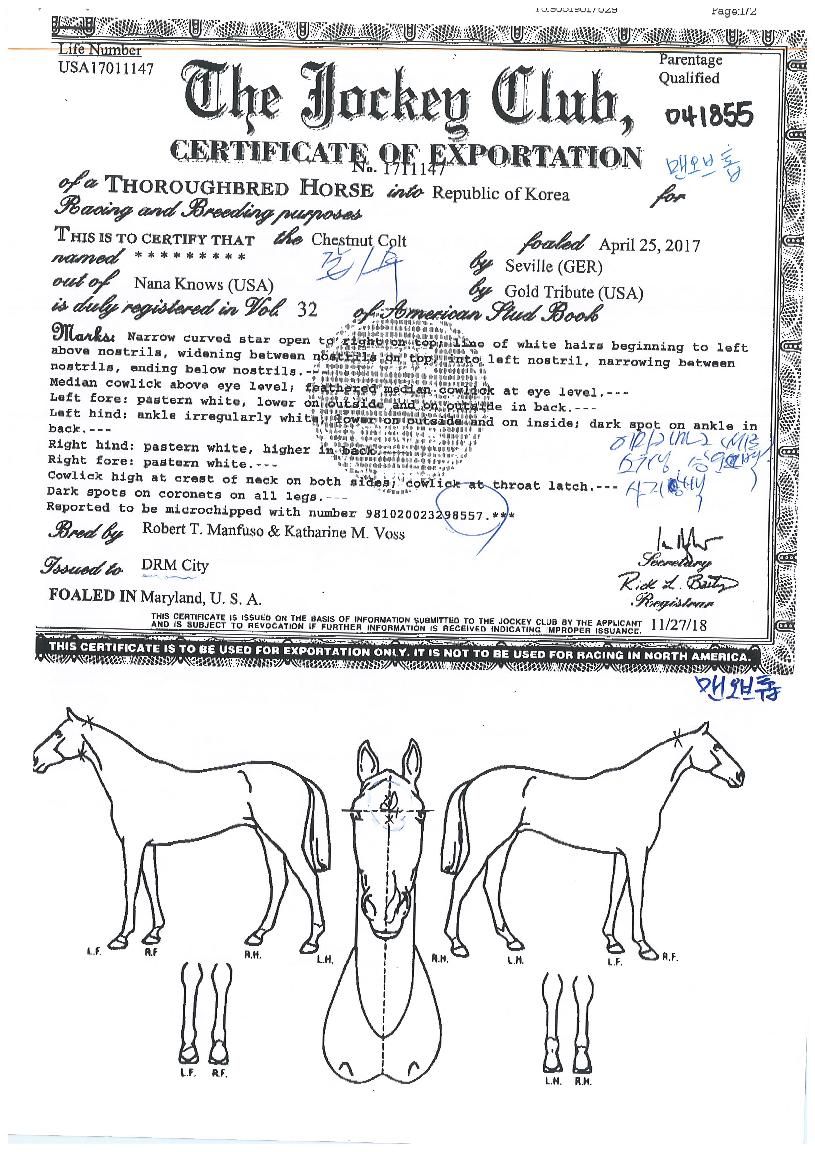 Page:1/2
Life Number
USA17011147
Parentage
Qualified
The Jockey Club,
041855
CERTIFICATE OF EXPORTATION
맨오브톱
No. 1711147
of a THOROUGHBRED HORSE into Republic of Korea for
Racing and Breeding purposes
THIS IS TO CERTIFY THAT the Chestnut Colt foaled April 25, 2017
named * * * * * * * * * by Seville (GER)
out of Nana Knows (USA) by Gold Tribute (USA)
is duly registered in Vol. 32 of American Stud Book
Marks: Narrow curved star open to right on top; line of white hairs beginning to left
above nostrils, widening between nostrils on top, into left nostril, narrowing between
nostrils, ending below nostrils.---
Median cowlick above eye level; feathered median cowlick at eye level.---
Left fore: pastern white, lower on outside and on outside in back.---
Left hind: ankle irregularly white, lower on outside and on inside; dark spot on ankle in
back.---
Right hind: pastern white, higher in back.---
Right fore: pastern white.---
Cowlick high at crest of neck on both sides; cowlick at throat latch.---
Dark spots on coronets on all legs.---
Reported to be microchipped with number 981020023298557.***
Bred by Robert T. Manfuso & Katharine M. Voss
Issued to DRM City
Secretary
Rick L. Bailey
Registrar
FOALED IN Maryland, U. S. A.
THIS CERTIFICATE IS ISSUED ON THE BASIS OF INFORMATION SUBMITTED TO THE JOCKEY CLUB BY THE APPLICANT
AND IS SUBJECT TO REVOCATION IF FURTHER INFORMATION IS RECEIVED INDICATING IMPROPER ISSUANCE.
11/27/18
THIS CERTIFICATE IS TO BE USED FOR EXPORTATION ONLY. IT IS NOT TO BE USED FOR RACING IN NORTH AMERICA.
맨오브톱
L.F. R.F R.H. L.H. R.H. L.H. L.F. R.F.
L.F. R.F. L.H. R.H.